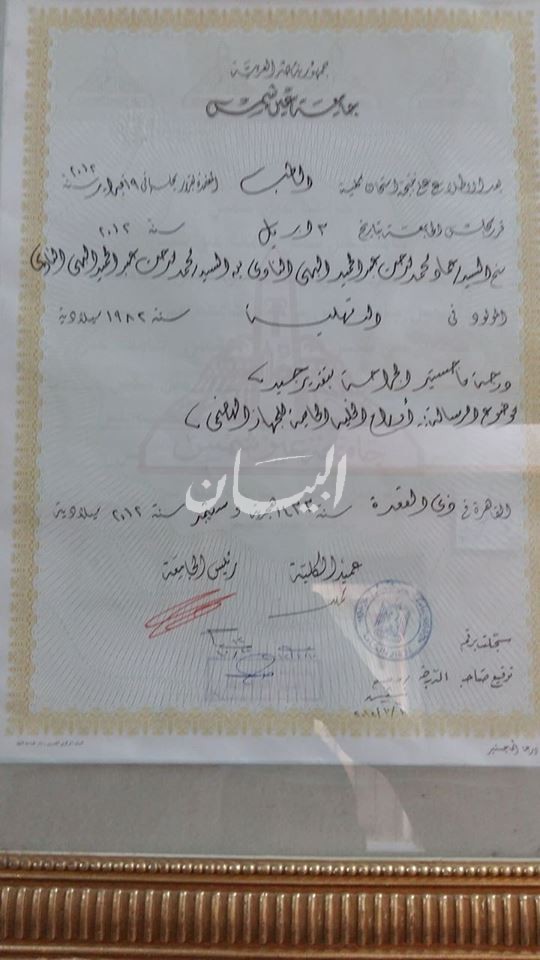 جمهورية مصر العربية
جامعة عين شمس
بعد الاطلاع على نتيجة امتحان كلية الطب المعتمدة بقرار مجلس فى ١٩ فبراير سنة ٢٠١٢
قرر مجلس الجامعة بتاريخ ٣٠ ابريل سنة ٢٠١٢
منح السيد/ عماد محمد عبد الرحمن عبد الحميد البهى المناوى السيد/ محمد عبد الرحمن عبد الحميد البهى المناوى
المولود فى الدقهلية سنة ١٩٨٢ ميلادية
درجة ماجستير الجراحة بتقدير جيد
موضوع الرسالة: أورام الخلية الخاصة بالجهاز الهضمى
البيان
القاهرة فى ذى القعدة سنة ١٤٣٣ هجرية و سبتمبر سنة ٢٠١٢ ميلادية
عميد الكلية رئيس الجامعة
سجلت برقم
توقيع صاحب الدرجة